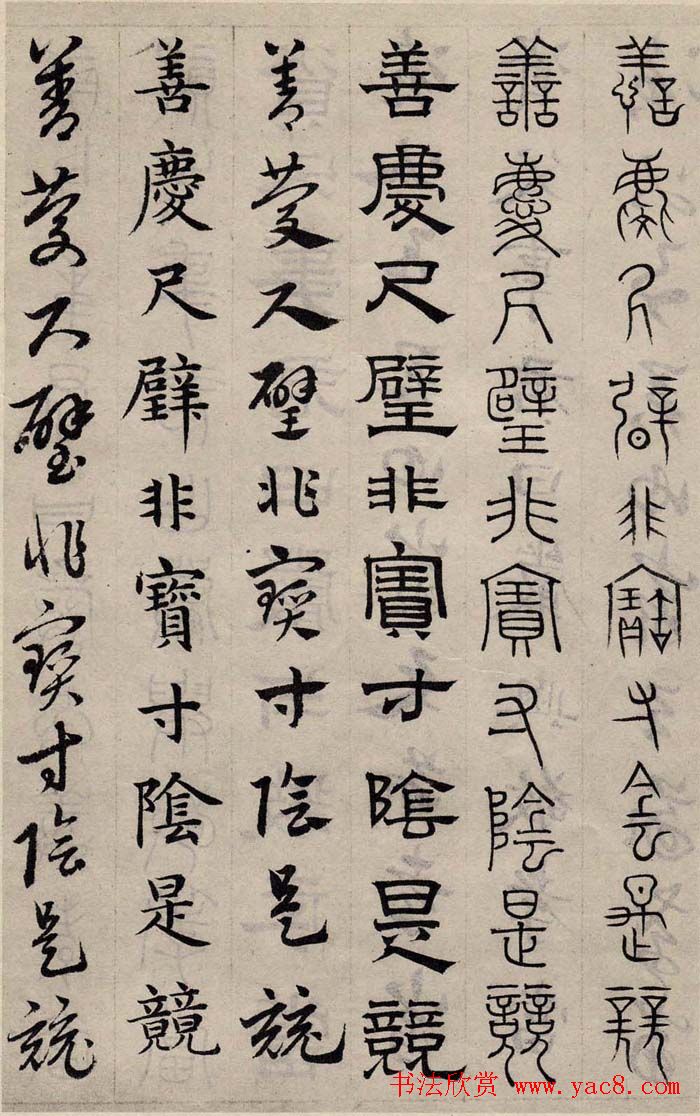 善慶尺璧非寶寸陰是競
善慶尺璧非寶寸陰是競
善慶尺璧非寶寸陰是競
善慶尺璧非寶寸陰是競
善慶尺璧非寶寸陰是競
善慶尺璧非寶寸陰是競
书法欣赏 www.yac8.com